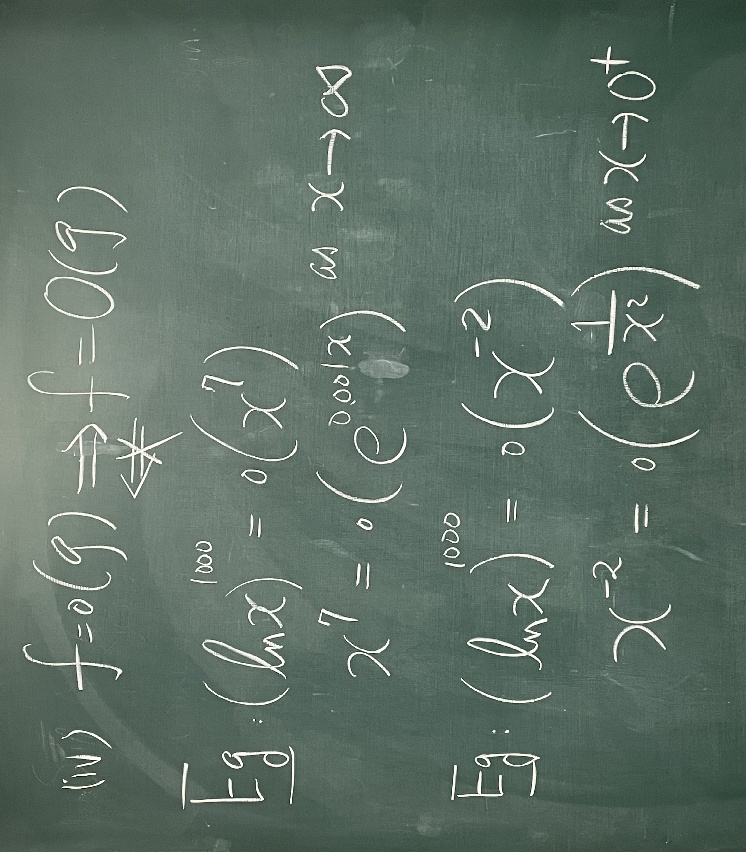 (iv) f=o(g) ⇒ f=O(g)
⇍
Eg: (ln x)^1000 = o(x^7)
x^7 = o(e^0.001x) as x→∞
Eg: (ln x)^1000 = o(x^-2)
x^-2 = o(e^(1/x^2)) as x→0^+